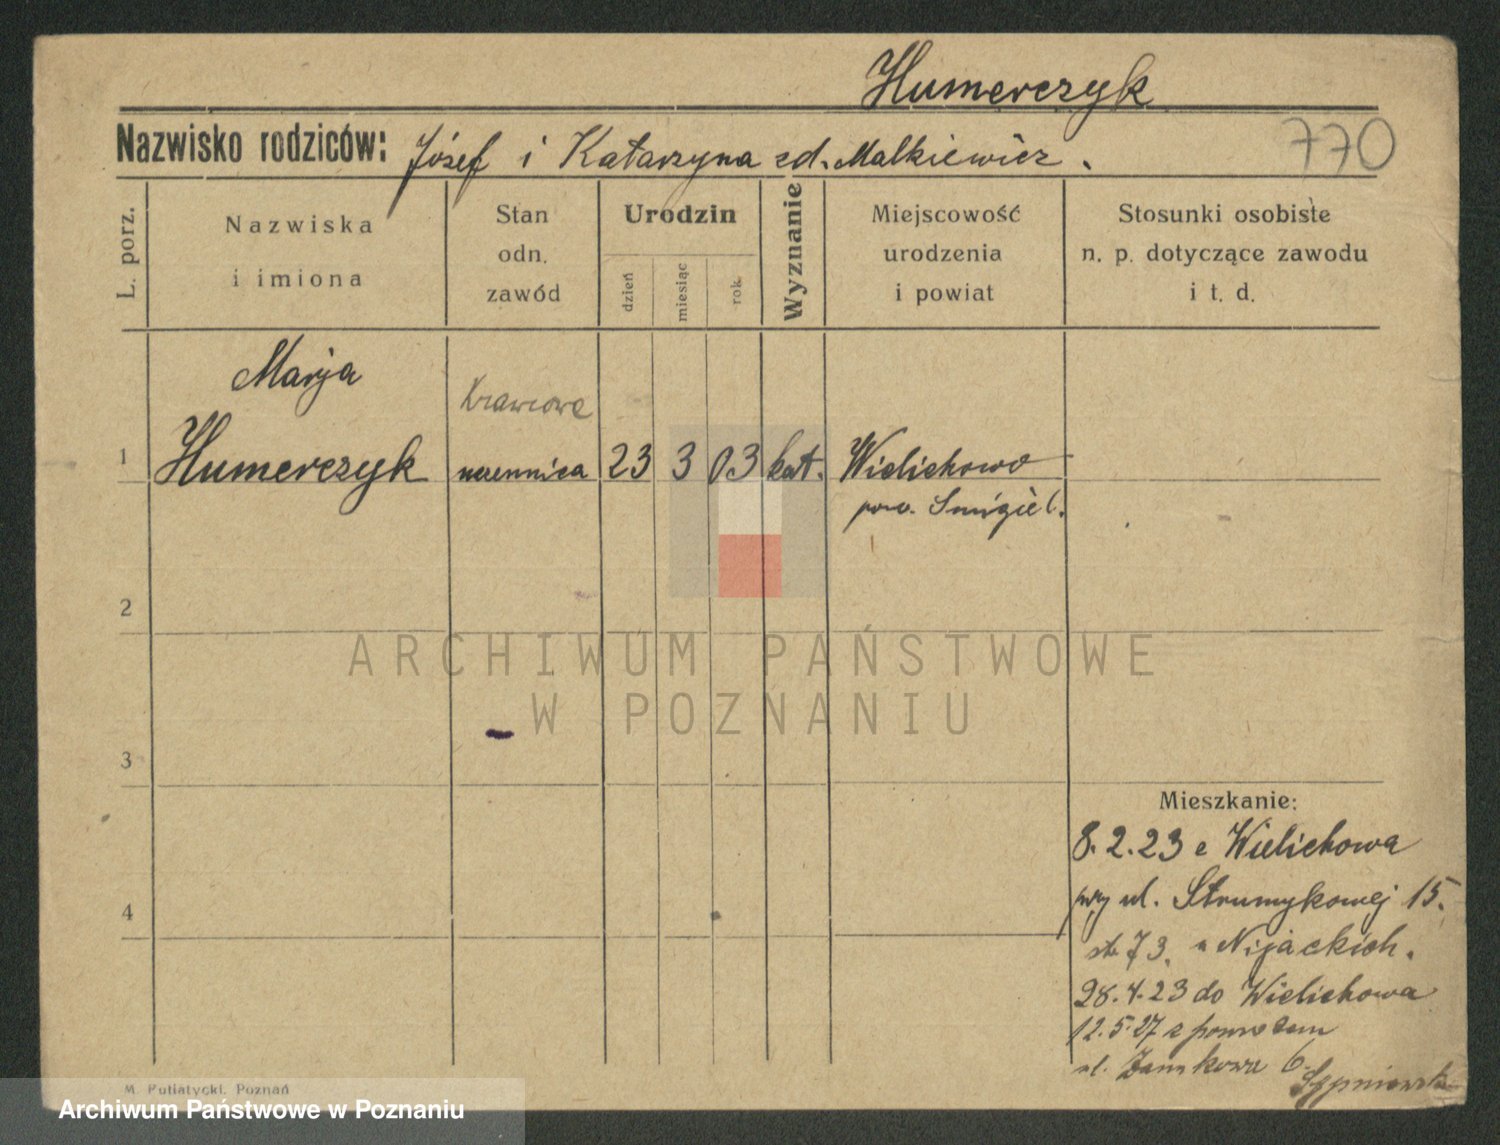 Humerczyk
770
Nazwisko rodziców: Józef i Katarzyna zd. Malkiewicz.
L. porz.
Nazwiska
i imiona
Stan
odn.
zawód
Urodzin
dzień
miesiąc
rok
Wyznanie
Miejscowość
urodzenia
i powiat
Stosunki osobiste
n. p. dotyczące zawodu
i t. d.
Marja
Krawcowa
1 Humerczyk uczennica 23 3 03 kat. Wielichowo
pow. Smigiel.
2
ARCHIWUM PAŃSTWOWE
W POZNANIU
3
Mieszkanie:
8.2.23 z Wielichowa
przy ul. Strumykowej 15.
73. u Nijackich.
4
28.4.23 do Wielichowa
12.5.27 z powrotem
ul. Zamkowa 6.
M. Putiatycki, Poznań
Archiwum Państwowe w Poznaniu